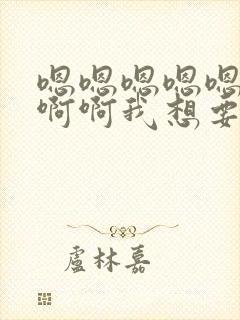 嗯嗯嗯嗯嗯
啊啊我想要
盧林嘉